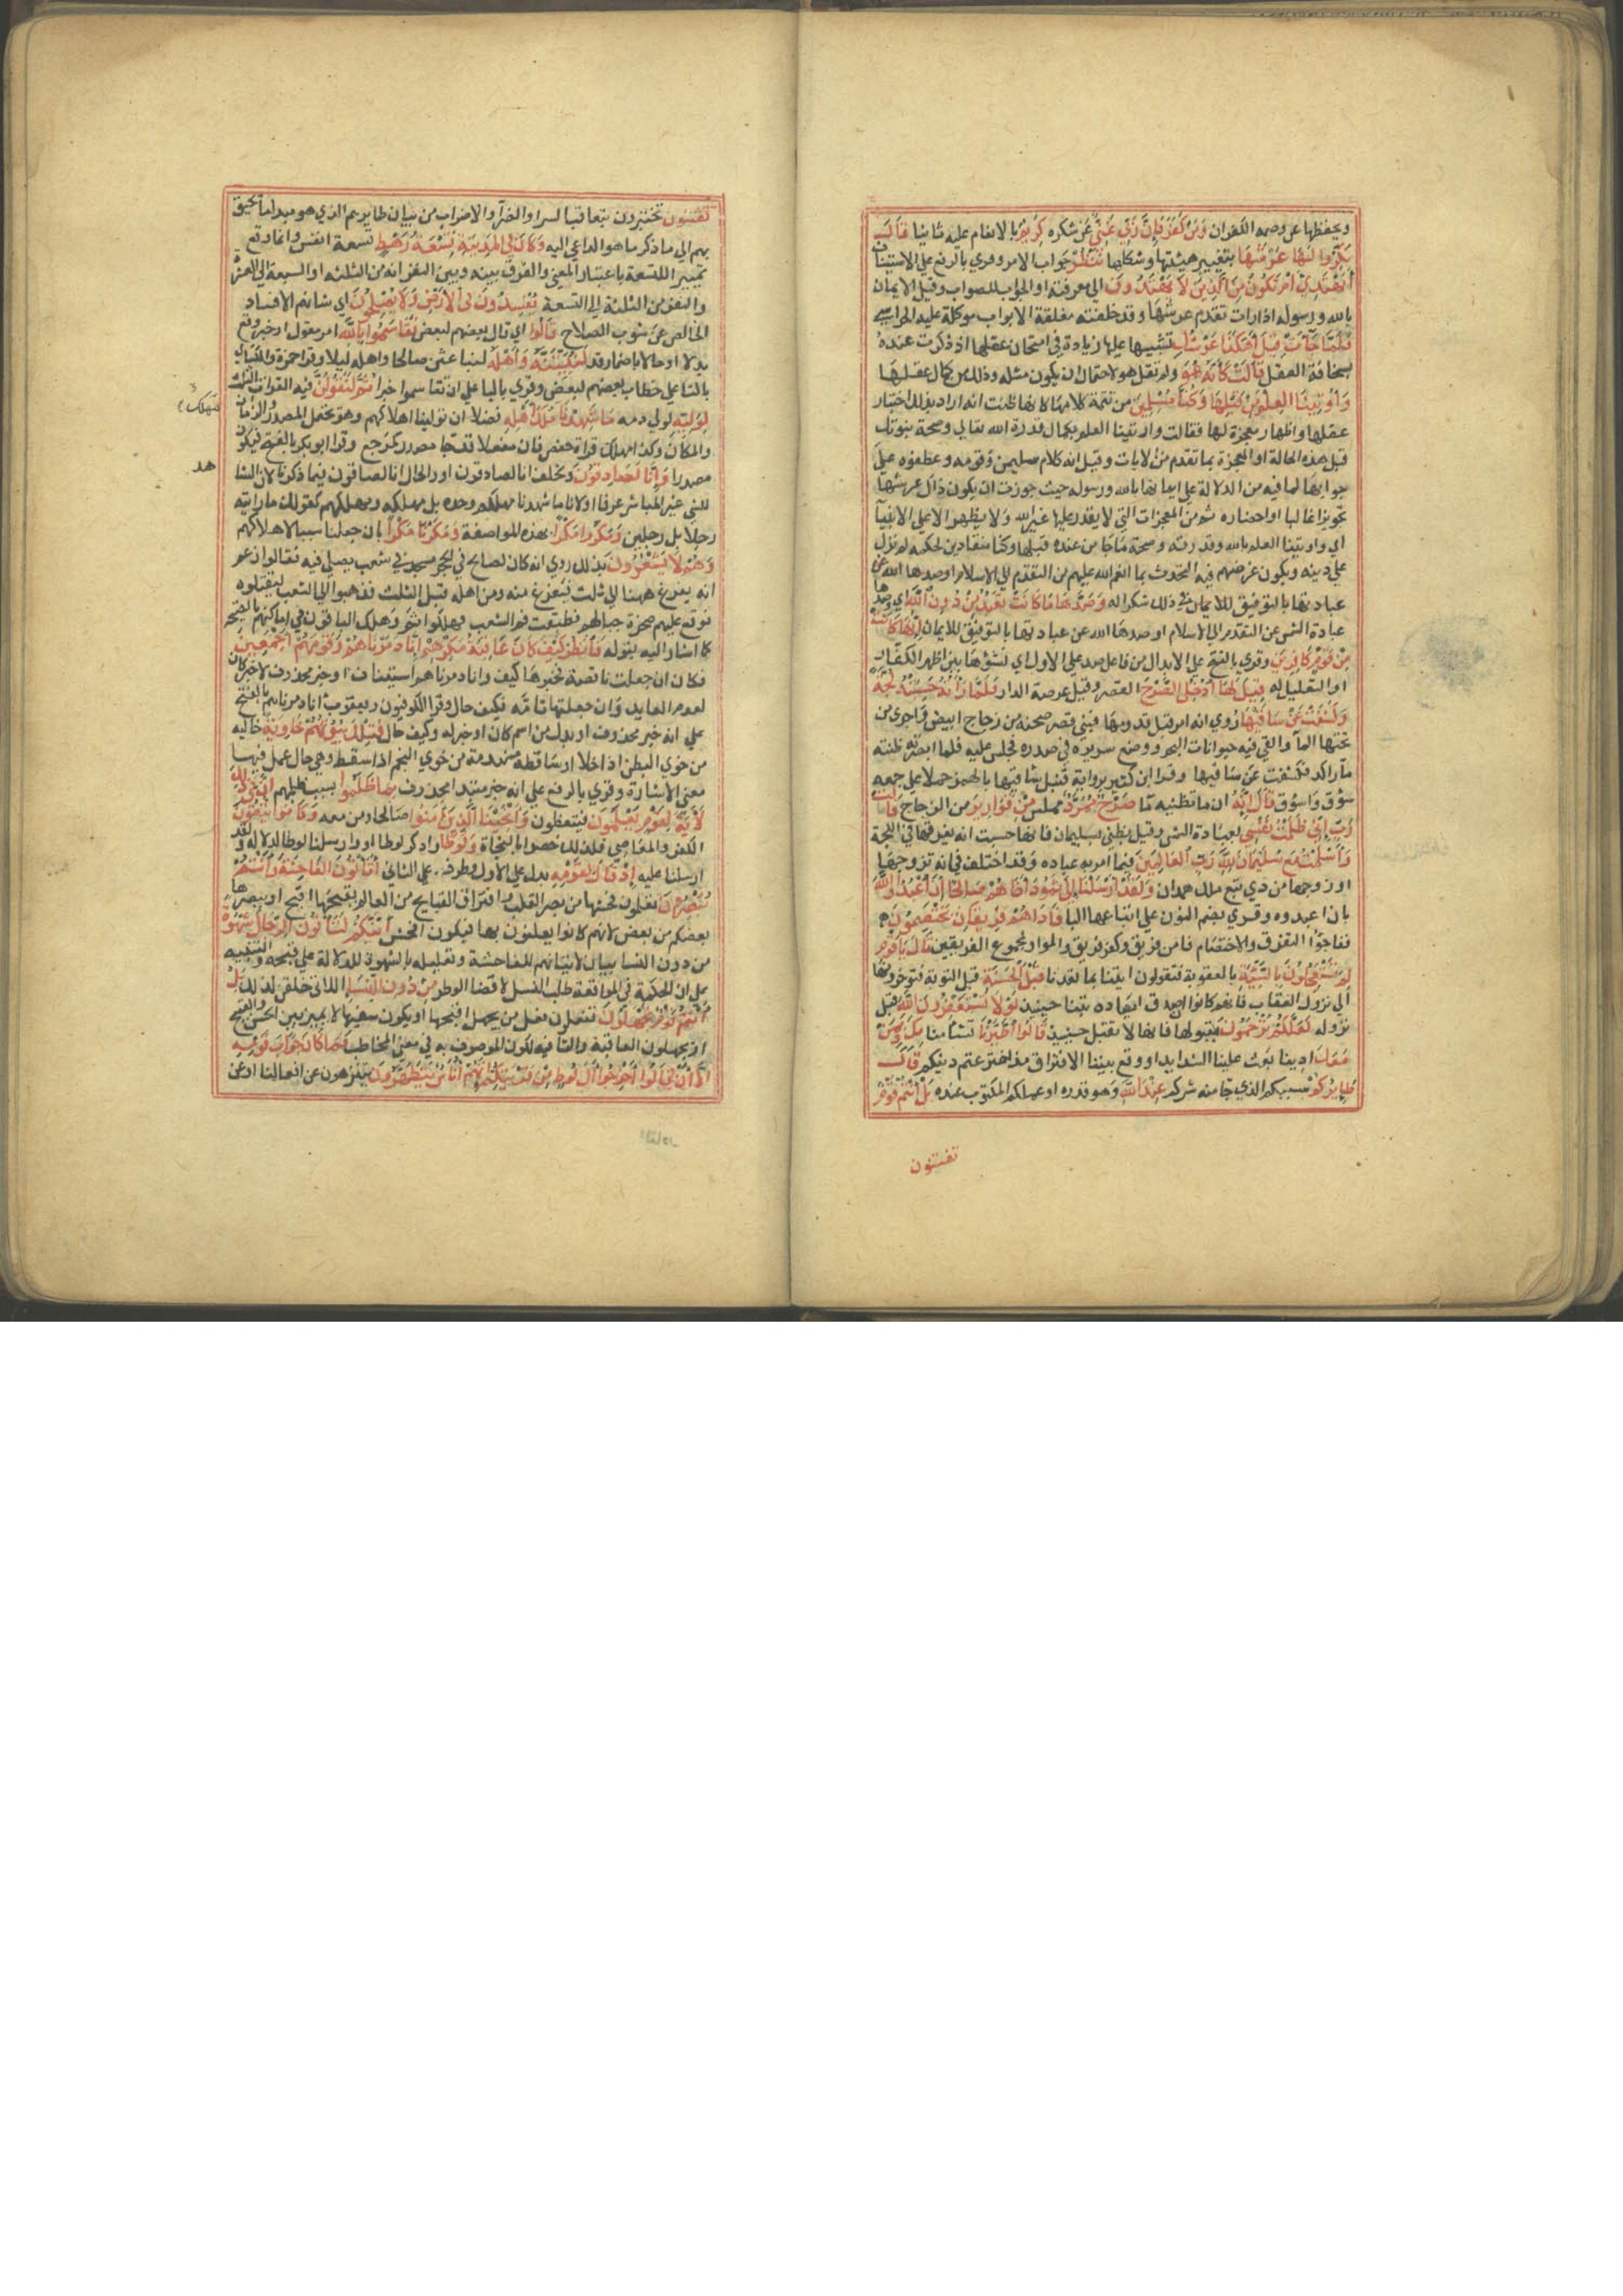 ويحفظها عن وصمة الكفران وَمَنْ كَفَرَ فَإِنَّ رَبِّي غَنِيٌّ عن شكره كَرِيمٌ بالانعام عليه ثانيا قَالَ
نَكِّرُوا لَهَا عَرْشَهَا بتغيير هيئتها وشكلها نَنْظُرْ جواب الامر وقري بالرفع علي الاستيناف
أَتَهْتَدِي أَمْ تَكُونُ مِنَ الَّذِينَ لَا يَهْتَدُونَ الي معرفته او الجواب الصواب وقيل الايمان
بالله ورسوله اذا رات تقدم عرشها وقد خلفته مغلقة الابواب موكلة عليه الحراس
فَلَمَّا جَاءَتْ قِيلَ أَهَكَذَا عَرْشُكِ تشبيها عليها زيادة في امتحان عقلها اذ ذكرت عنده
بسخافة العقل قَالَتْ كَأَنَّهُ هُوَ ولم تقل هو لاحتمال ان يكون مثله وذلك من كمال عقلها
وَأُوتِينَا الْعِلْمَ مِنْ قَبْلِهَا وَكُنَّا مُسْلِمِينَ من تتمة كلامها كانها ظنت انه اراد بذلك اختبار
عقلها واظهار معجزة لها فقالت واوتينا العلم بكمال قدرة الله تعالي وصحة نبوتك
قبل هذه الحالة او المعجزة بما تقدم من الايات وقيل انه كلام سليمن وقومه وعطفوه علي
جوابها لما فيه من الدلالة علي ايمانها بالله ورسوله حيث جوزت ان يكون ذاك عرشها
تجويزا غالبا واحضاره ثم من المعجزات التي لا يقدر عليها غير الله ولا يظهر الا علي الانبيآ
اي واوتينا العلم بالله وقدرته وصحة ما جا من عنده قبلها وكنا منقادين لحكمه لم نزل
علي دينه ويكون غرضهم فيه التحدث بما انعم الله عليهم من التقدم الي الاسلام او صدها الله عن
عبادتها بالتوفيق للايمان ذلك شكرا له وَصَدَّهَا مَا كَانَتْ تَعْبُدُ مِنْ دُونِ اللَّهِ اي وصدها
عبادة الشمس عن التقدم الي الاسلام او صدها الله عن عبادتها بالتوفيق للايمان إِنَّهَا كَانَتْ
مِنْ قَوْمٍ كَافِرِينَ وقري بالفتح علي الابدال من فاعل صد علي الاول اي نشؤها بين اظهر الكفار
او التعليل له قِيلَ لَهَا ادْخُلِي الصَّرْحَ القصر وقيل عرصة الدار فَلَمَّا رَأَتْهُ حَسِبَتْهُ لُجَّةً
وَكَشَفَتْ عَنْ سَاقَيْهَا روي انه امر قبل قدومها فبني قصر صحنه من زجاج ابيض واجري من
تحتها المآ والقي فيه حيوانات البحر ووضع سريره في صدره فجلس عليه فلما ابصرته ظنته
مآ راكدا فكشفت عن ساقيها وقرا ابن كثير برواية قنبل ساقيها بالهمز حملا علي جمعه
سؤق واسؤق قَالَ إِنَّهُ ان ما تظنينه مآ صَرْحٌ مُمَرَّدٌ مملس مِنْ قَوَارِيرَ من الزجاج قَالَتْ
رَبِّ إِنِّي ظَلَمْتُ نَفْسِي بعبادة الشمس وقيل بظني بسليمان فانها حسبت انه يغرقها في اللجة
وَأَسْلَمْتُ مَعَ سُلَيْمَانَ لِلَّهِ رَبِّ الْعَالَمِينَ فيما امر به عباده وقد اختلف في انه تزوجها
او زوجها من ذي تبع ملك همدان وَلَقَدْ أَرْسَلْنَا إِلَى ثَمُودَ أَخَاهُمْ صَالِحًا أَنِ اعْبُدُوا اللَّهَ
بان اعبدوه وقري بضم النون علي اتباعها البا فَإِذَا هُمْ فَرِيقَانِ يَخْتَصِمُونَ
ففاجؤا التفرق والاختصام فامن فريق وكفر فريق والواو لمجموع الفريقين قَالَ يَا قَوْمِ
لِمَ تَسْتَعْجِلُونَ بِالسَّيِّئَةِ بالعقوبة فتقولون ايتنا بما تعدنا قَبْلَ الْحَسَنَةِ قبل التوبة فتوخرونها
الي نزول العقاب فانهم كانوا ان صدق ايعاده تبنا حينئذ لَوْلَا تَسْتَغْفِرُونَ اللَّهَ قبل
نزوله لَعَلَّكُمْ تُرْحَمُونَ بقبولها فانها لا تقبل حينئذ قَالُوا اطَّيَّرْنَا تشأمنا بِكَ وَبِمَنْ
مَعَكَ اذ تتابعت علينا الشدايد او وقع بيننا الافتراق مذ اخترعتم دينكم قَالَ
طَائِرُكُمْ سببكم الذي جا منه شركم عِنْدَ اللَّهِ وهو قدره او عملكم المكتوب عنده بَلْ أَنْتُمْ قَوْمٌ
تفتنون
تُفْتَنُونَ تختبرون بتعاقب السرا والضرآ والاضراب من بيان طايرهم الذي هو مبدا ما يحيق
بهم الي ذكر ما هو الداعي اليه وَكَانَ فِي الْمَدِينَةِ تِسْعَةُ رَهْطٍ تسعة انفس وانما وقع
تمييز التسعة باعتبار المعني والفرق بينه وبين النفر انه من الثلثة او السبعة الي العشرة
والنفر من الثلثة الي التسعة يُفْسِدُونَ فِي الْأَرْضِ وَلَا يُصْلِحُونَ اي شانهم الافساد
الخالص عن شوب الصلاح قَالُوا اي قال بعضهم لبعض تَقَاسَمُوا بِاللَّهِ امر مقول او خبر وقع
بدلا او حالا باضمار قد لَنُبَيِّتَنَّهُ وَأَهْلَهُ لنباغتن صالحا واهله ليلا وقرا حمزة والكسائي
بالتا علي خطاب بعضهم لبعض وقري باليا علي ان تقاسموا خبر ثُمَّ لَنَقُولَنَّ فيه القراات الثلث
لِوَلِيِّهِ لولي دمه مَا شَهِدْنَا مَهْلِكَ أَهْلِهِ فضلا ان تولينا اهلاكهم وهو يحتمل المصدر والزمان
والمكان وكذا مهلك قراة حفص فان مفعلا قد جا مصدرا كمرجع وقرا ابو بكر بالفتح فيكون
مصدرا وَإِنَّا لَصَادِقُونَ ونحلف انا لصادقون او والحال انا لصادقون فيما ذكرنا لان الشاهد
للشي غير المباشر عرفا او لانا ما شهدنا مهلكهم وحده بل مهلكه ومهلكهم كقولك ما رايت ثمه
رجلا بل رجلين وَمَكَرُوا مَكْرًا بهذه المواضعة وَمَكَرْنَا مَكْرًا بان جعلنا سببا لاهلاكهم
وَهُمْ لَا يَشْعُرُونَ بذلك روي انه كان لصالح في الحجر مسجد في شعب يصلي فيه فقالوا زعم
انه يفرغ منا الي ثلث فنفرغ منه ومن اهله قبل الثلث فذهبوا الي الشعب ليقتلوه
فوقع عليهم صخرة حيالهم فطبقت فم الشعب فهلكوا ثمه وهلك الباقون في اماكنهم بالصيحة
كما اشار اليه بقوله فَانْظُرْ كَيْفَ كَانَ عَاقِبَةُ مَكْرِهِمْ أَنَّا دَمَّرْنَاهُمْ وَقَوْمَهُمْ أَجْمَعِينَ
فكان ان جعلت ناقصة فخبرها كيف وانا دمرناهم استيناف او خبر محذوف لا خبر كان
لعدم العايد وان جعلتها تامة فكيف حال وقرا الكوفيون ويعقوب انا دمرناهم بالفتح
علي انه خبر محذوف او بدل من اسم كان او خبر له وكيف حال فَتِلْكَ بُيُوتُهُمْ خَاوِيَةً خالية
من خوي البطن اذا خلا او ساقطة منهدمة من خوي النجم اذا سقط وهي حال عمل فيها
معني الاشارة وقري بالرفع علي انه خبر مبتدا محذوف بِمَا ظَلَمُوا بسبب ظلمهم إِنَّ فِي ذَلِكَ
لَآيَةً لِقَوْمٍ يَعْلَمُونَ فيتعظون وَأَنْجَيْنَا الَّذِينَ آمَنُوا صالحا ومن معه وَكَانُوا يَتَّقُونَ
الكفر والمعاصي فلذلك خصوا بالنجاة وَلُوطًا واذكر لوطا او وارسلنا لوطا لدلالة ولقد
ارسلنا عليه إِذْ قَالَ لِقَوْمِهِ بدل علي الاول وظرف علي الثاني أَتَأْتُونَ الْفَاحِشَةَ وَأَنْتُمْ
تُبْصِرُونَ تعلمون فحشها من بصر القلب واقتراف القبايح من العالم بقبحها اقبح او يبصرها
بعضكم من بعض لانهم كانوا يعلنون بها فيكون افحش أَئِنَّكُمْ لَتَأْتُونَ الرِّجَالَ شَهْوَةً
من دون النسا بيان لاتيانهم للفاحشة وتعليله بالشهوة للدلالة علي قبحه والتنبيه
علي ان الحكمة في المواقعة طلب النسل لا قضا الوطر مِنْ دُونِ النِّسَاءِ اللاتي خلقن لذلك بَلْ
أَنْتُمْ قَوْمٌ تَجْهَلُونَ تفعلون فعل من يجهل اقبحها او يكون سفيها لا يميز بين الحسن والقبيح
او يجهلون العاقبة والتا فيه لكون الموصوف به في معني المخاطب فَمَا كَانَ جَوَابَ قَوْمِهِ
إِلَّا أَنْ قَالُوا أَخْرِجُوا آلَ لُوطٍ مِنْ قَرْيَتِكُمْ إِنَّهُمْ أُنَاسٌ يَتَطَهَّرُونَ يتنزهون عن افعالنا او عن
مهلك
هد